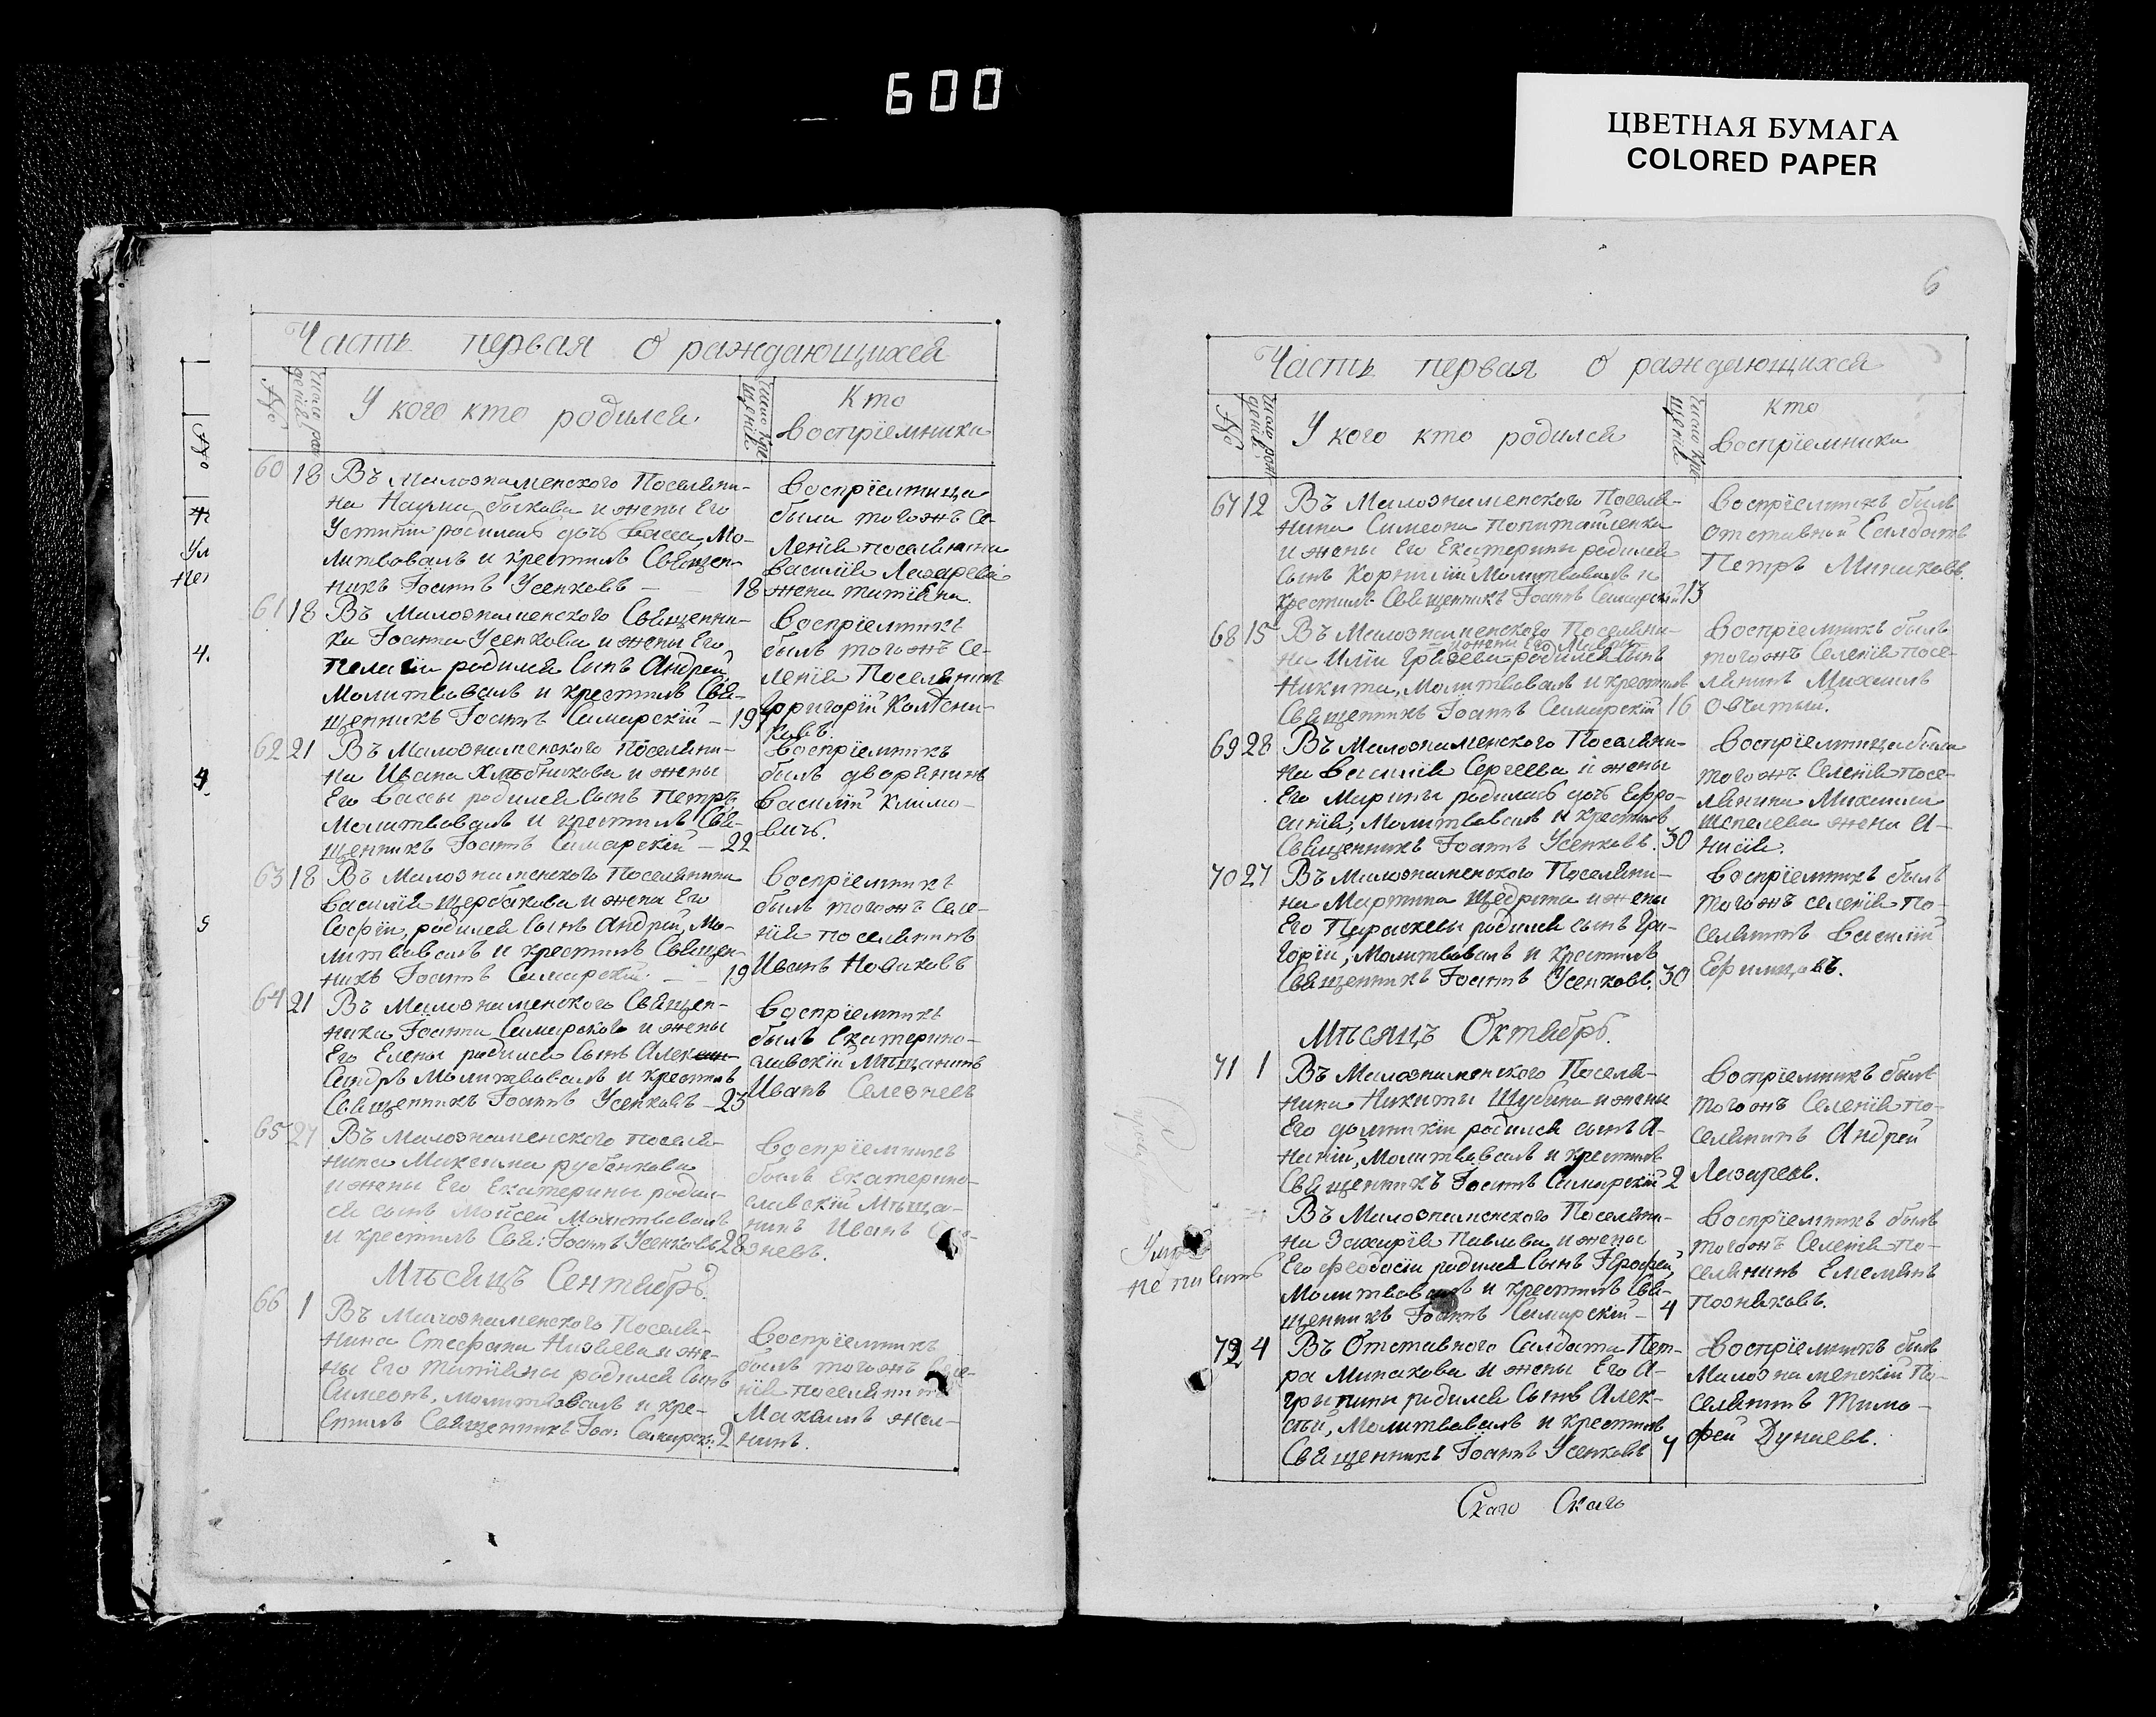 600
ЦВЕТНАЯ БУМАГА
COLORED PAPER
Часть первая о раждающихся
№
У кого кто родился.
Кто
воспріемники
60 18 Въ Малознаменского Поселяни-
на Наума Быкова и жены Его
Устиніи родилась дочь Васса, Мо-
литвовалъ и крестилъ Священ-
никъ Іоаннъ Усенковъ — 18
воспріемница
была тогожъ Се-
ленія поселянина
василія Лазарева
жена татіяна.
61 18 Въ Малознаменского Священни-
ка Іоанна Усенкова и жены Его
Пелагіи родился Сынъ Андрей
Молитвовалъ и крестилъ Свя-
щенникъ Іоаннъ Самарскій — 19
воспріемникъ
былъ тогожъ Се-
ленія Поселянинъ
Григорій Колѣсни-
ковъ.
62 21 Въ Малознаменского Поселяни-
на Ивана Хлѣбникова и жены
Его Вассы родился Сынъ Петръ,
Молитвовалъ и крестилъ Свя-
щенникъ Іоаннъ Самарскій — 22
воспріемникъ
былъ дворянинъ
Василій Климо-
вичь.
63 18 Въ Малознаменского Поселянина
василія щербакова и жены Его
Софіи, родился Сынъ Андрей, Мо-
литвовалъ и крестилъ Священ-
никъ Іоаннъ Самарскій. — 19
воспріемникъ
былъ тогожъ Селе-
нія поселянинъ
Иванъ Новиковъ
64 21 Въ Малознаменского Священ-
ника Іоанна Самарского и жены
Его Елены родился Сынъ Алек-
сандръ Молитвовалъ и крестилъ
Священникъ Іоаннъ Усенковъ — 23
воспріемникъ
былъ Екатерино-
славскій Мѣщанинъ
Иванъ Селезневъ
65 27 Въ Малознаменского поселя-
нина Максима рубанкова
и жены Его Екатерины родил-
ся сынъ Моисей Молитвовалъ
и крестилъ Свя: Іоаннъ Усенковъ 28
воспріемникъ
былъ Екатерино-
славскій Мѣща-
нинъ Иванъ
зневъ.
Мѣсяцъ Сентябрь.
66 1 Въ Малознаменского Поселя-
нина Стефана Низѣева и же-
ны Его татіяны родился Сынъ
Симеонъ, молитвовалъ и кре-
стилъ Священникъ Іоа: Самарск: 2
воспріемникъ
былъ тогожъ Селе-
нія поселянинъ
Максимъ жел-
нинъ.
6
Часть первая о раждающихся
№
У кого кто родился
Кто
воспріемники
67 12 Въ Малознаменского Поселя-
нина Симеона
и жены Его Екатерины родился
Сынъ Корнилій Молитвовалъ и
крестилъ Священникъ Іоаннъ Самарскій 13
воспріемникъ былъ
отставной Салдатъ
Петръ Минаковъ.
68 15 Въ Малознаменского Поселяни-
и жены Его Мавры
на Иліи Грязева родился Сынъ
Никита, Молитвовалъ и крестилъ
Священникъ Іоаннъ Самарскій 16
воспріемникъ былъ
тогожъ Селенія посе-
лянинъ Михаилъ
Овчатый.
69 28 Въ Малознаменского Поселяни-
на Василія Сергеева и жены
Его Марины родилась дочь Ефро-
синія, Молитвовалъ и крестилъ
Священникъ Іоаннъ Усенковъ. 30
воспріемница была
тогожъ Селенія посе-
лянина Михаила
Шепелева жена А-
нисія.
70 27 Въ Малознаменского Поселяни-
на Мартина Щедрина и жены
Его Параскевы родился сынъ Гри-
горій, Молитвовалъ и крестилъ
Священникъ Іоаннъ Усенковъ. 30
воспріемникъ былъ
тогожъ селенія по-
селянинъ Василій
Ефимцовъ.
Мѣсяцъ Октябрь.
71 1 Въ Малознаменского Поселя-
нина Никиты Шубина и жены
Его домникіи родился сынъ А-
наній, Молитвовалъ и крестилъ
Священникъ Іоаннъ Самарскій 2
воспріемникъ былъ
тогожъ Селенія по-
селянинъ Андрей
Лазаревъ.
Въ Малознаменского Поселяни-
на Захарія Павлова и жены
Его Феодосіи родился Сынъ Іерофей,
Молитвовалъ и крестилъ Свя-
щенникъ Іоаннъ Самарскій — 4
воспріемникъ былъ
тогожъ Селенія по-
селянинъ Емельянъ
Позняковъ.
72 4 Въ Отставного Салдата Пет-
ра Минакова и жены Его А-
грипины родился Сынъ Алек-
сѣй, Молитвовалъ и крестилъ
Священникъ Іоаннъ Усенковъ 7
Воспріемникъ былъ
Малознаменскій По-
селянинъ Тимо-
фей Дунаевъ.